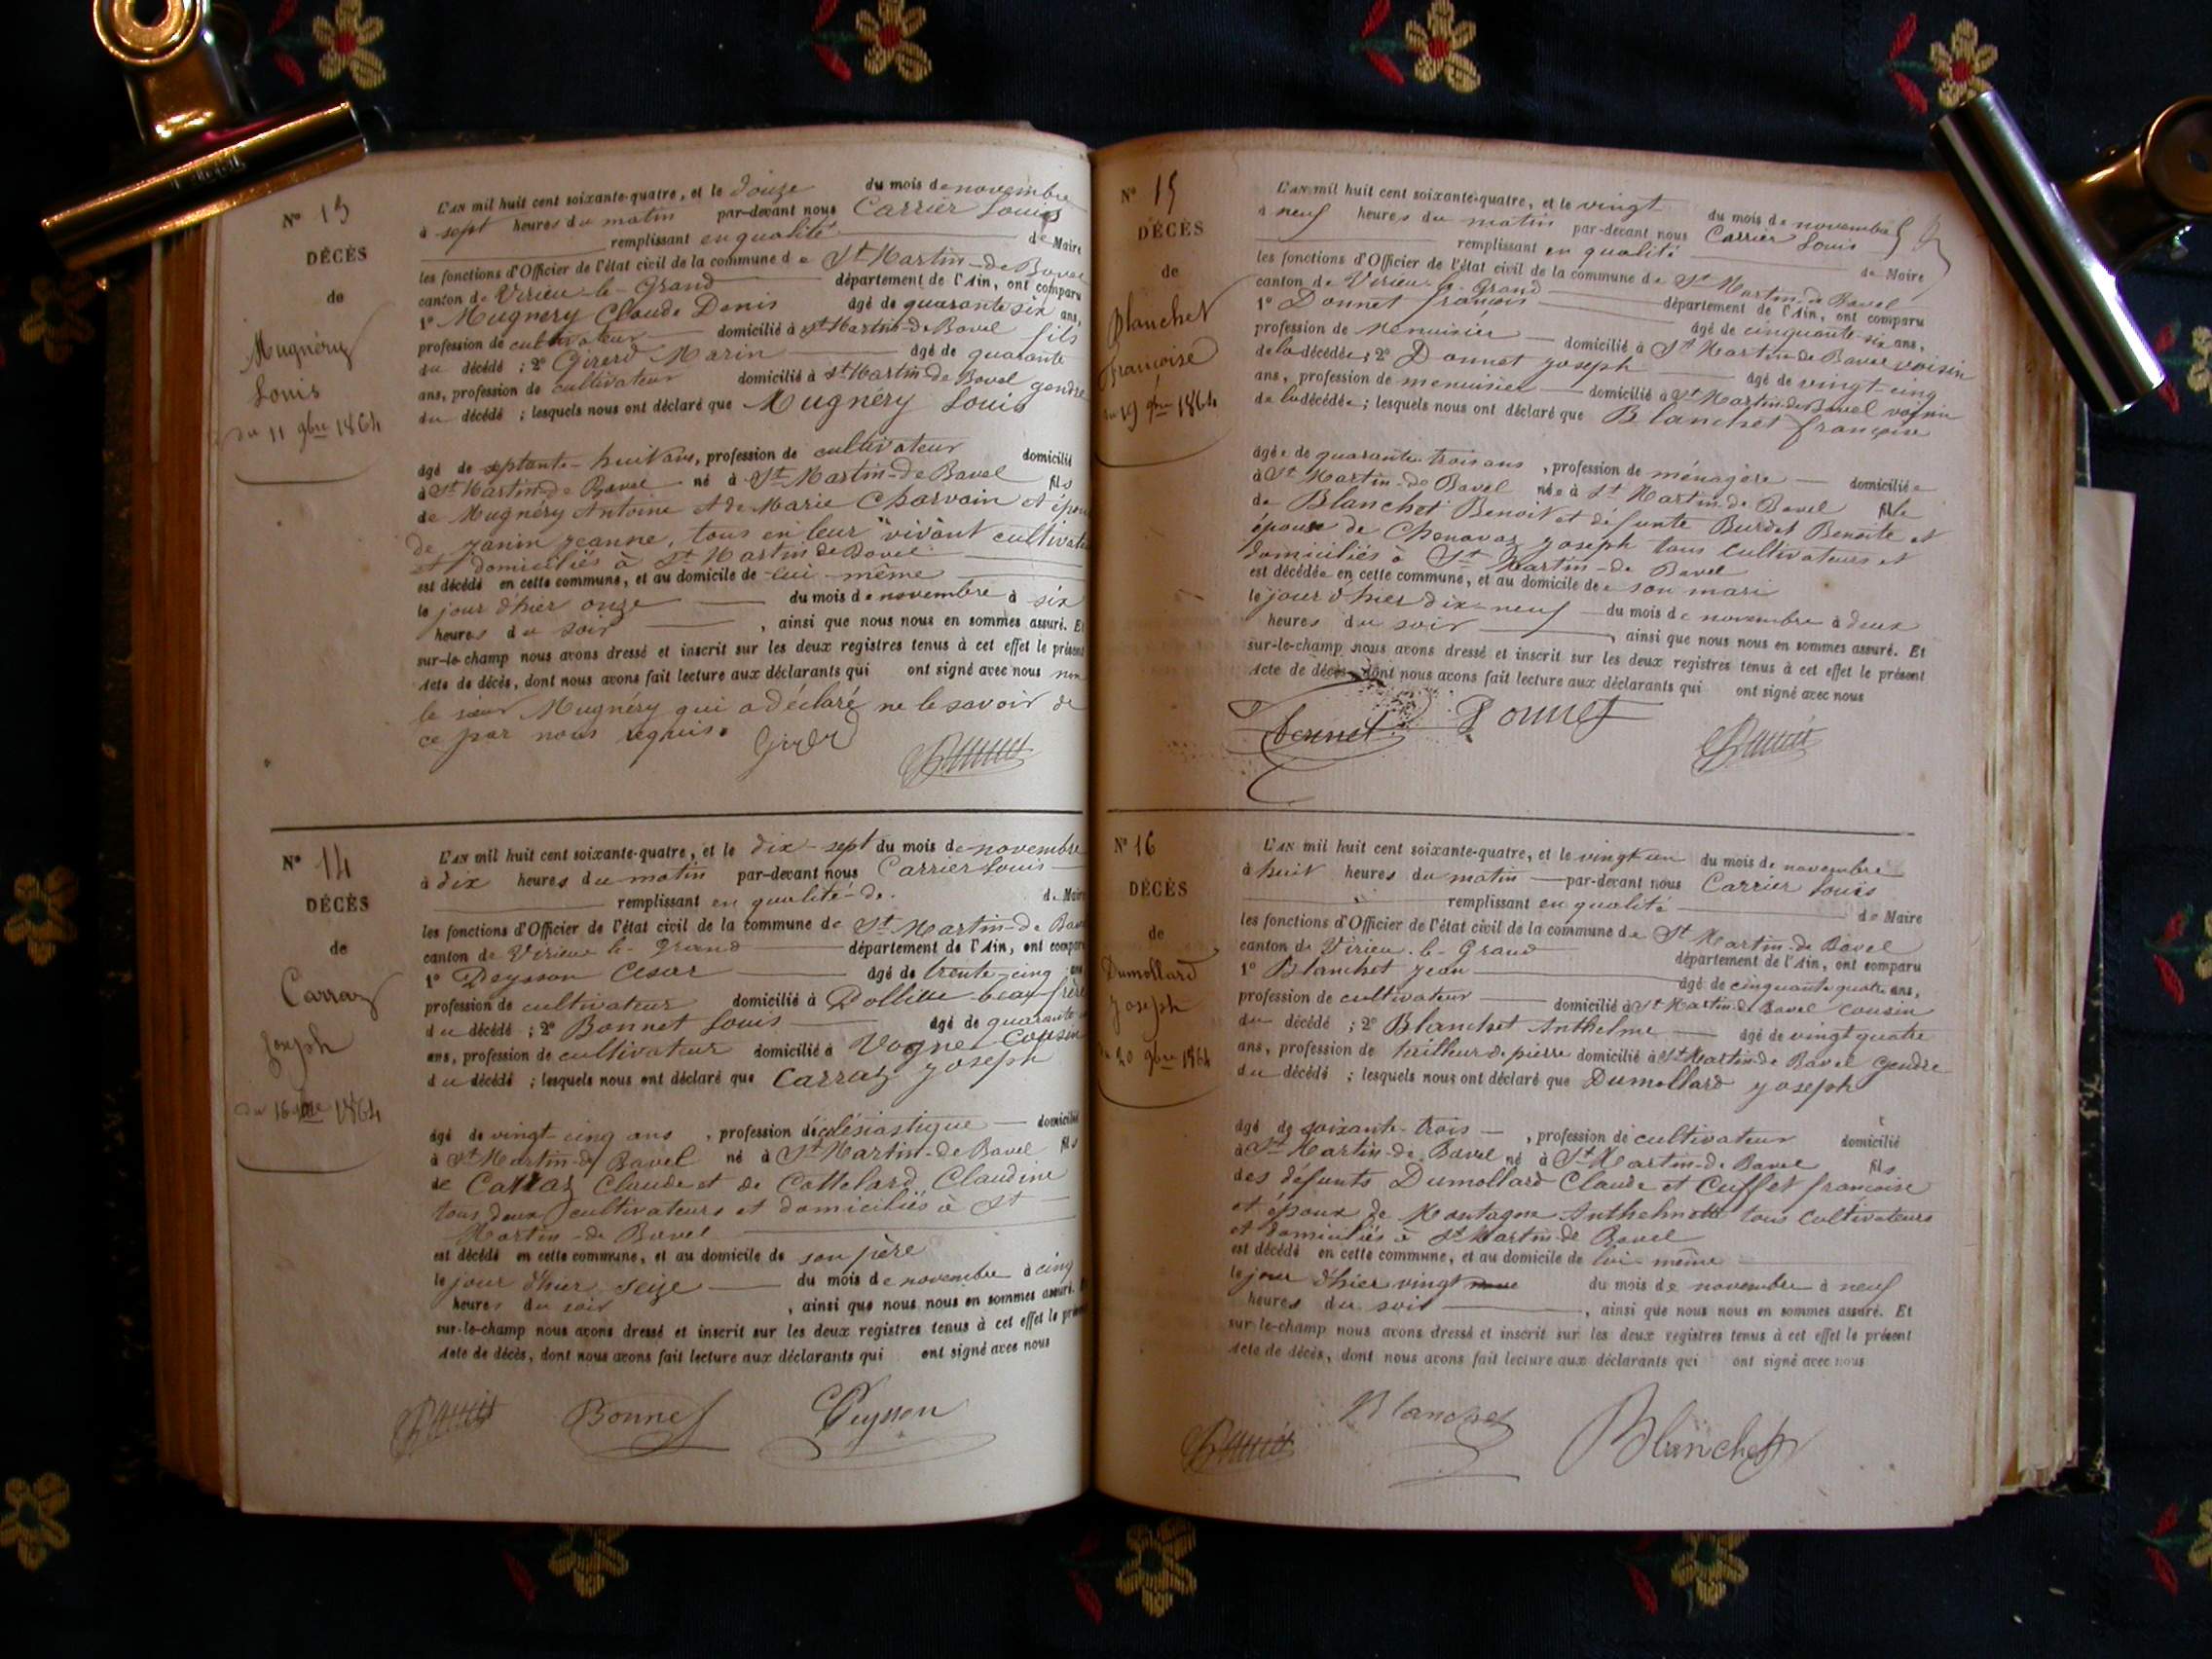 N° 13
DÉCÈS
de
Mugnéry
Louis
du 11 9bre 1864
L'AN mil huit cent soixante-quatre, et le douze du mois de novembre
à sept heures du matin par-devant nous Carrier Louis
remplissant en qualité de Maire
les fonctions d'Officier de l'état civil de la commune de St Martin-de Bavel
canton de Virieu-le-Grand département de l'Ain, ont comparu
1° Mugnery Claude Denis âgé de quarante six ans,
profession de cultivateur domicilié à St Martin-de Bavel fils
du décédé ; 2° Girerd Marin âgé de quarante
ans, profession de cultivateur domicilié à St Martin-de Bavel gendre
du décédé ; lesquels nous ont déclaré que Mugnéry Louis
âgé de septante-huit ans, profession de cultivateur domicilié
à St Martin-de Bavel né à St Martin-de Bavel fils
de Mugnéry Antoine et de Marie Charvain et époux
de Janin Jeanne, tous en leur vivant cultivate
et domiciliés à St Martin de Bavel
est décédé en cette commune, et au domicile de lui-même
le jour d'hier onze du mois de novembre à six
heures du soir, ainsi que nous nous en sommes assuré. Et
sur-le-champ nous avons dressé et inscrit sur les deux registres tenus à cet effet le présent
Acte de décès, dont nous avons fait lecture aux déclarants qui ont signé avec nous non
le sieur Mugnéry qui a déclaré ne le savoir de
ce par nous requis. Girerd
N° 14
DÉCÈS
de
Carraz
Joseph
du 16 9bre 1864
L'AN mil huit cent soixante-quatre, et le dix-sept du mois de novembre
à dix heures du matin par-devant nous Carrier Louis
remplissant en qualité-de. de Maire
les fonctions d'Officier de l'état civil de la commune de St Martin-de Bavel
canton de Virieu le-Grand département de l'Ain, ont comparu
1° Peysson César âgé de trente-cinq ans
profession de cultivateur domicilié à Dollieu beau frère
du décédé ; 2° Bonnet Louis âgé de quarante
ans, profession de cultivateur domicilié à Vogne Cousin
du décédé ; lesquels nous ont déclaré que Carraz Joseph
âgé de vingt-cinq ans, profession d'écclésiastique domicilié
à St Martin-de Bavel né à St Martin-de Bavel fils
de Carraz Claude et de Cottelard Claudine
tous deux cultivateurs et domiciliés à St
Martin-de Bavel
est décédé en cette commune, et au domicile de son père
le jour d'hier seize du mois de novembre à cinq
heures du soir, ainsi que nous nous en sommes assuré. Et
sur-le-champ nous avons dressé et inscrit sur les deux registres tenus à cet effet le présent
Acte de décès, dont nous avons fait lecture aux déclarants qui ont signé avec nous
Bonnet Peysson
N° 15
DÉCÈS
de
Blanchet
Françoise
du 19 9bre 1864
L'AN mil huit cent soixante-quatre, et le vingt du mois de novembre
à neuf heures du matin par-devant nous Carrier Louis
remplissant en qualité de Maire
les fonctions d'Officier de l'état civil de la commune de St Martin-de Bavel
canton de Virieu-le-Grand département de l'Ain, ont comparu
1° Donnet françois âgé de cinquante-six ans,
profession de Menuisier domicilié à St Martin de Bavel voisin
de la décédée; 2° Donnet Joseph âgé de vingt-cinq
ans, profession de menuisier domicilié à St Martin-de Bavel voisin
de la décédée; lesquels nous ont déclaré que Blanchet françoise
âgée de quarante trois ans, profession de ménagère domiciliée
à St Martin-de Bavel née à St Martin de Bavel fille
de Blanchet Benoit et défunte Burdet Benoite et
épouse de Chenavaz Joseph tous cultivateurs et
domiciliés à St Martin-de Bavel
est décédée en cette commune, et au domicile de son mari
le jour d'hier dix-neuf du mois de novembre à deux
heures du soir, ainsi que nous nous en sommes assuré. Et
sur-le-champ nous avons dressé et inscrit sur les deux registres tenus à cet effet le présent
Acte de décès, dont nous avons fait lecture aux déclarants qui ont signé avec nous
Donnet Donnet
N° 16
DÉCÈS
de
Dumollard
Joseph
du 20 9bre 1864
L'AN mil huit cent soixante-quatre, et le vingt un du mois de novembre
à huit heures du matin par-devant nous Carrier Louis
remplissant en qualité de Maire
les fonctions d'Officier de l'état civil de la commune de St Martin-de Bavel
canton de Virieu-le-Grand département de l'Ain, ont comparu
1° Blanchet Jean âgé de cinquante quatre ans,
profession de cultivateur domicilié à St Martin de Bavel cousin
du décédé ; 2° Blanchet Anthelme âgé de vingt quatre
ans, profession de tailleur de pierre domicilié à St Martin-de Bavel Gendre
du décédé ; lesquels nous ont déclaré que Dumollard Joseph
âgé de soixante-trois, profession de cultivateur domicilié
à St Martin-de Bavel né à St Martin-de Bavel fils
des défunts Dumollard Claude et Cuffet françoise
et époux de Montagne Anthelmette tous Cultivateurs
et domiciliés à St Martin-de Bavel
est décédé en cette commune, et au domicile de lui-même
le jour d'hier vingt du mois de novembre à neuf
heures du soir, ainsi que nous nous en sommes assuré. Et
sur-le-champ nous avons dressé et inscrit sur les deux registres tenus à cet effet le présent
Acte de décès, dont nous avons fait lecture aux déclarants qui ont signé avec nous
Blanchet Blanchet